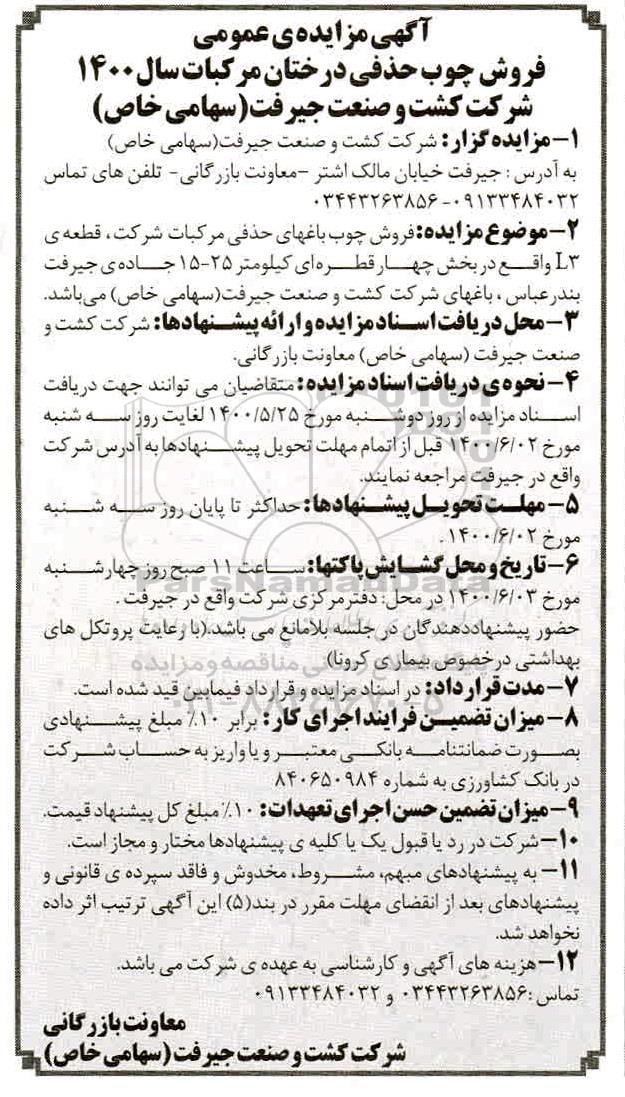 آگهی مزایده‌ی عمومی
فروش چوب حذفی درختان مرکبات سال ۱۴۰۰
شرکت کشت و صنعت جیرفت (سهامی خاص)
۱- مزایده گزار: شرکت کشت و صنعت جیرفت(سهامی خاص)
به آدرس : جیرفت خیابان مالک اشتر -معاونت بازرگانی- تلفن های تماس
۰۹۱۳۳۴۸۴۰۳۲- ۰۳۴۴۳۲۶۳۸۵۶
۲- موضوع مزایده: فروش چوب باغهای حذفی مرکبات شرکت، قطعه ی
L۳ واقع در بخش چهار قطره‌ای کیلومتر ۲۵-۱۵ جاده‌ی جیرفت
بندرعباس ، باغهای شرکت کشت و صنعت جیرفت(سهامی خاص) می‌باشد.
۳- محل دریافت اسناد مزایده و ارائه پیشنهادها: شرکت کشت و
صنعت جیرفت (سهامی خاص) معاونت بازرگانی.
۴- نحوه‌ی دریافت اسناد مزایده: متقاضیان می توانند جهت دریافت
اسناد مزایده از روز دوشنبه مورخ ۱۴۰۰/۵/۲۵ لغایت روز سه شنبه
مورخ ۱۴۰۰/۶/۰۲ قبل از اتمام مهلت تحویل پیشنهادها به آدرس شرکت
واقع در جیرفت مراجعه نمایند.
۵- مهلت تحویل پیشنهادها: حداکثر تا پایان روز سه شنبه
مورخ ۱۴۰۰/۶/۰۲ .
۶- تاریخ و محل گشایش پاکتها: ساعت ۱۱ صبح روز چهارشنبه
مورخ ۱۴۰۰/۶/۰۳ در محل: دفتر مرکزی شرکت واقع در جیرفت .
حضور پیشنهاددهندگان در جلسه بلامانع می باشد.(با رعایت پروتکل های
بهداشتی درخصوص بیماری کرونا)
۷- مدت قرارداد: در اسناد مزایده و قرارداد فیمابین قید شده است.
۸- میزان تضمین فرایند اجرای کار: برابر ۱۰٪ مبلغ پیشنهادی
بصورت ضمانتنامه بانکی معتبر و یا واریز به حساب شرکت
در بانک کشاورزی به شماره ۸۴۰۶۵۰۹۸۴
۹- میزان تضمین حسن اجرای تعهدات: ۱۰٪ مبلغ کل پیشنهاد قیمت.
۱۰- شرکت در رد یا قبول یک یا کلیه ی پیشنهادها مختار و مجاز است.
۱۱- به پیشنهادهای مبهم، مشروط، مخدوش و فاقد سپرده ی قانونی و
پیشنهادهای بعد از انقضای مهلت مقرر در بند(۵) این آگهی ترتیب اثر داده
نخواهد شد.
۱۲- هزینه های آگهی و کارشناسی به عهده ی شرکت می باشد.
تماس :۰۳۴۴۳۲۶۳۸۵۶ و ۰۹۱۳۳۴۸۴۰۳۲
معاونت بازرگانی
شرکت کشت و صنعت جیرفت (سهامی خاص)
ParsNamadData